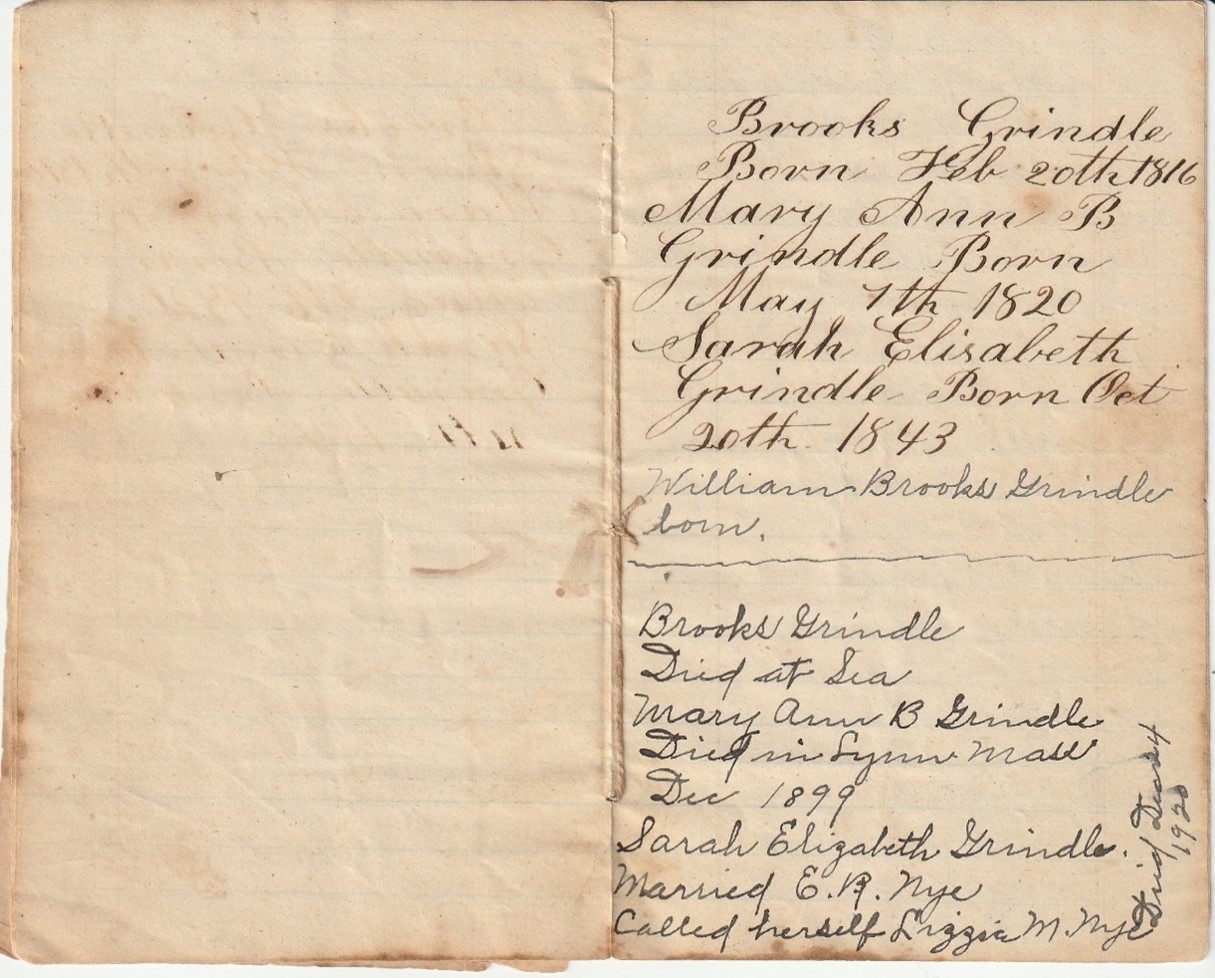 Brooks Grindle
Born Feb 20th 1816
Mary Ann B
Grindle Born
May 7th 1820
Sarah Elisabeth
Grindle Born Oct
20th. 1843
William Brooks Grindle
born.
Brooks Grindle
Died at Sea
Mary Ann B Grindle
Died in Lynn Mass
Dec 1899
Sarah Elizabeth Grindle.
Married E. R. Nye
Called herself Lizzie M. Nye
Died Dec 24
1920